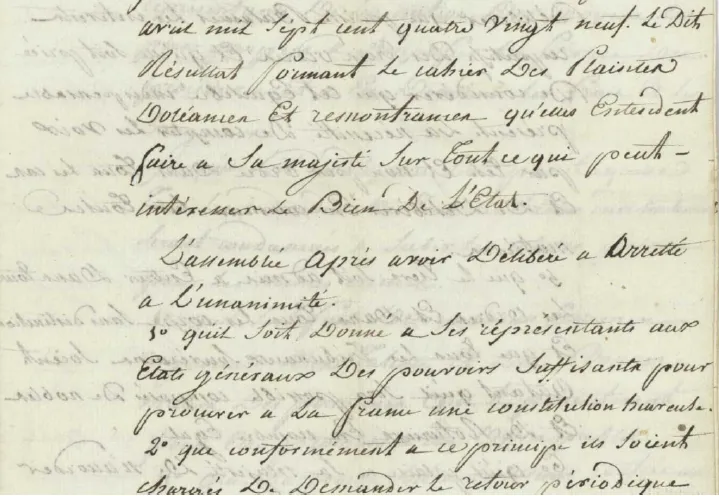 avril mil Sept cent quatre vingt neuf. Le Dit
Résultat formant Le cahier Des Plaintes
Doléances Et remontrances qu'elles Entendent
faire a Sa majesté Sur Tout ce qui peut-
intéresser Le Bien De L'Etat.
L'assemblée Après avoir Délibéré a Arretté
a L'unanimité.
1º quil Soit Donné a Ses réprésentants aux
Etats généraux Des pouvoirs Suffisants pour
procurer a La france une constitution heureuse.
2º que conformément a ce principe ils Soient
chargés De Demander Le retour périodique